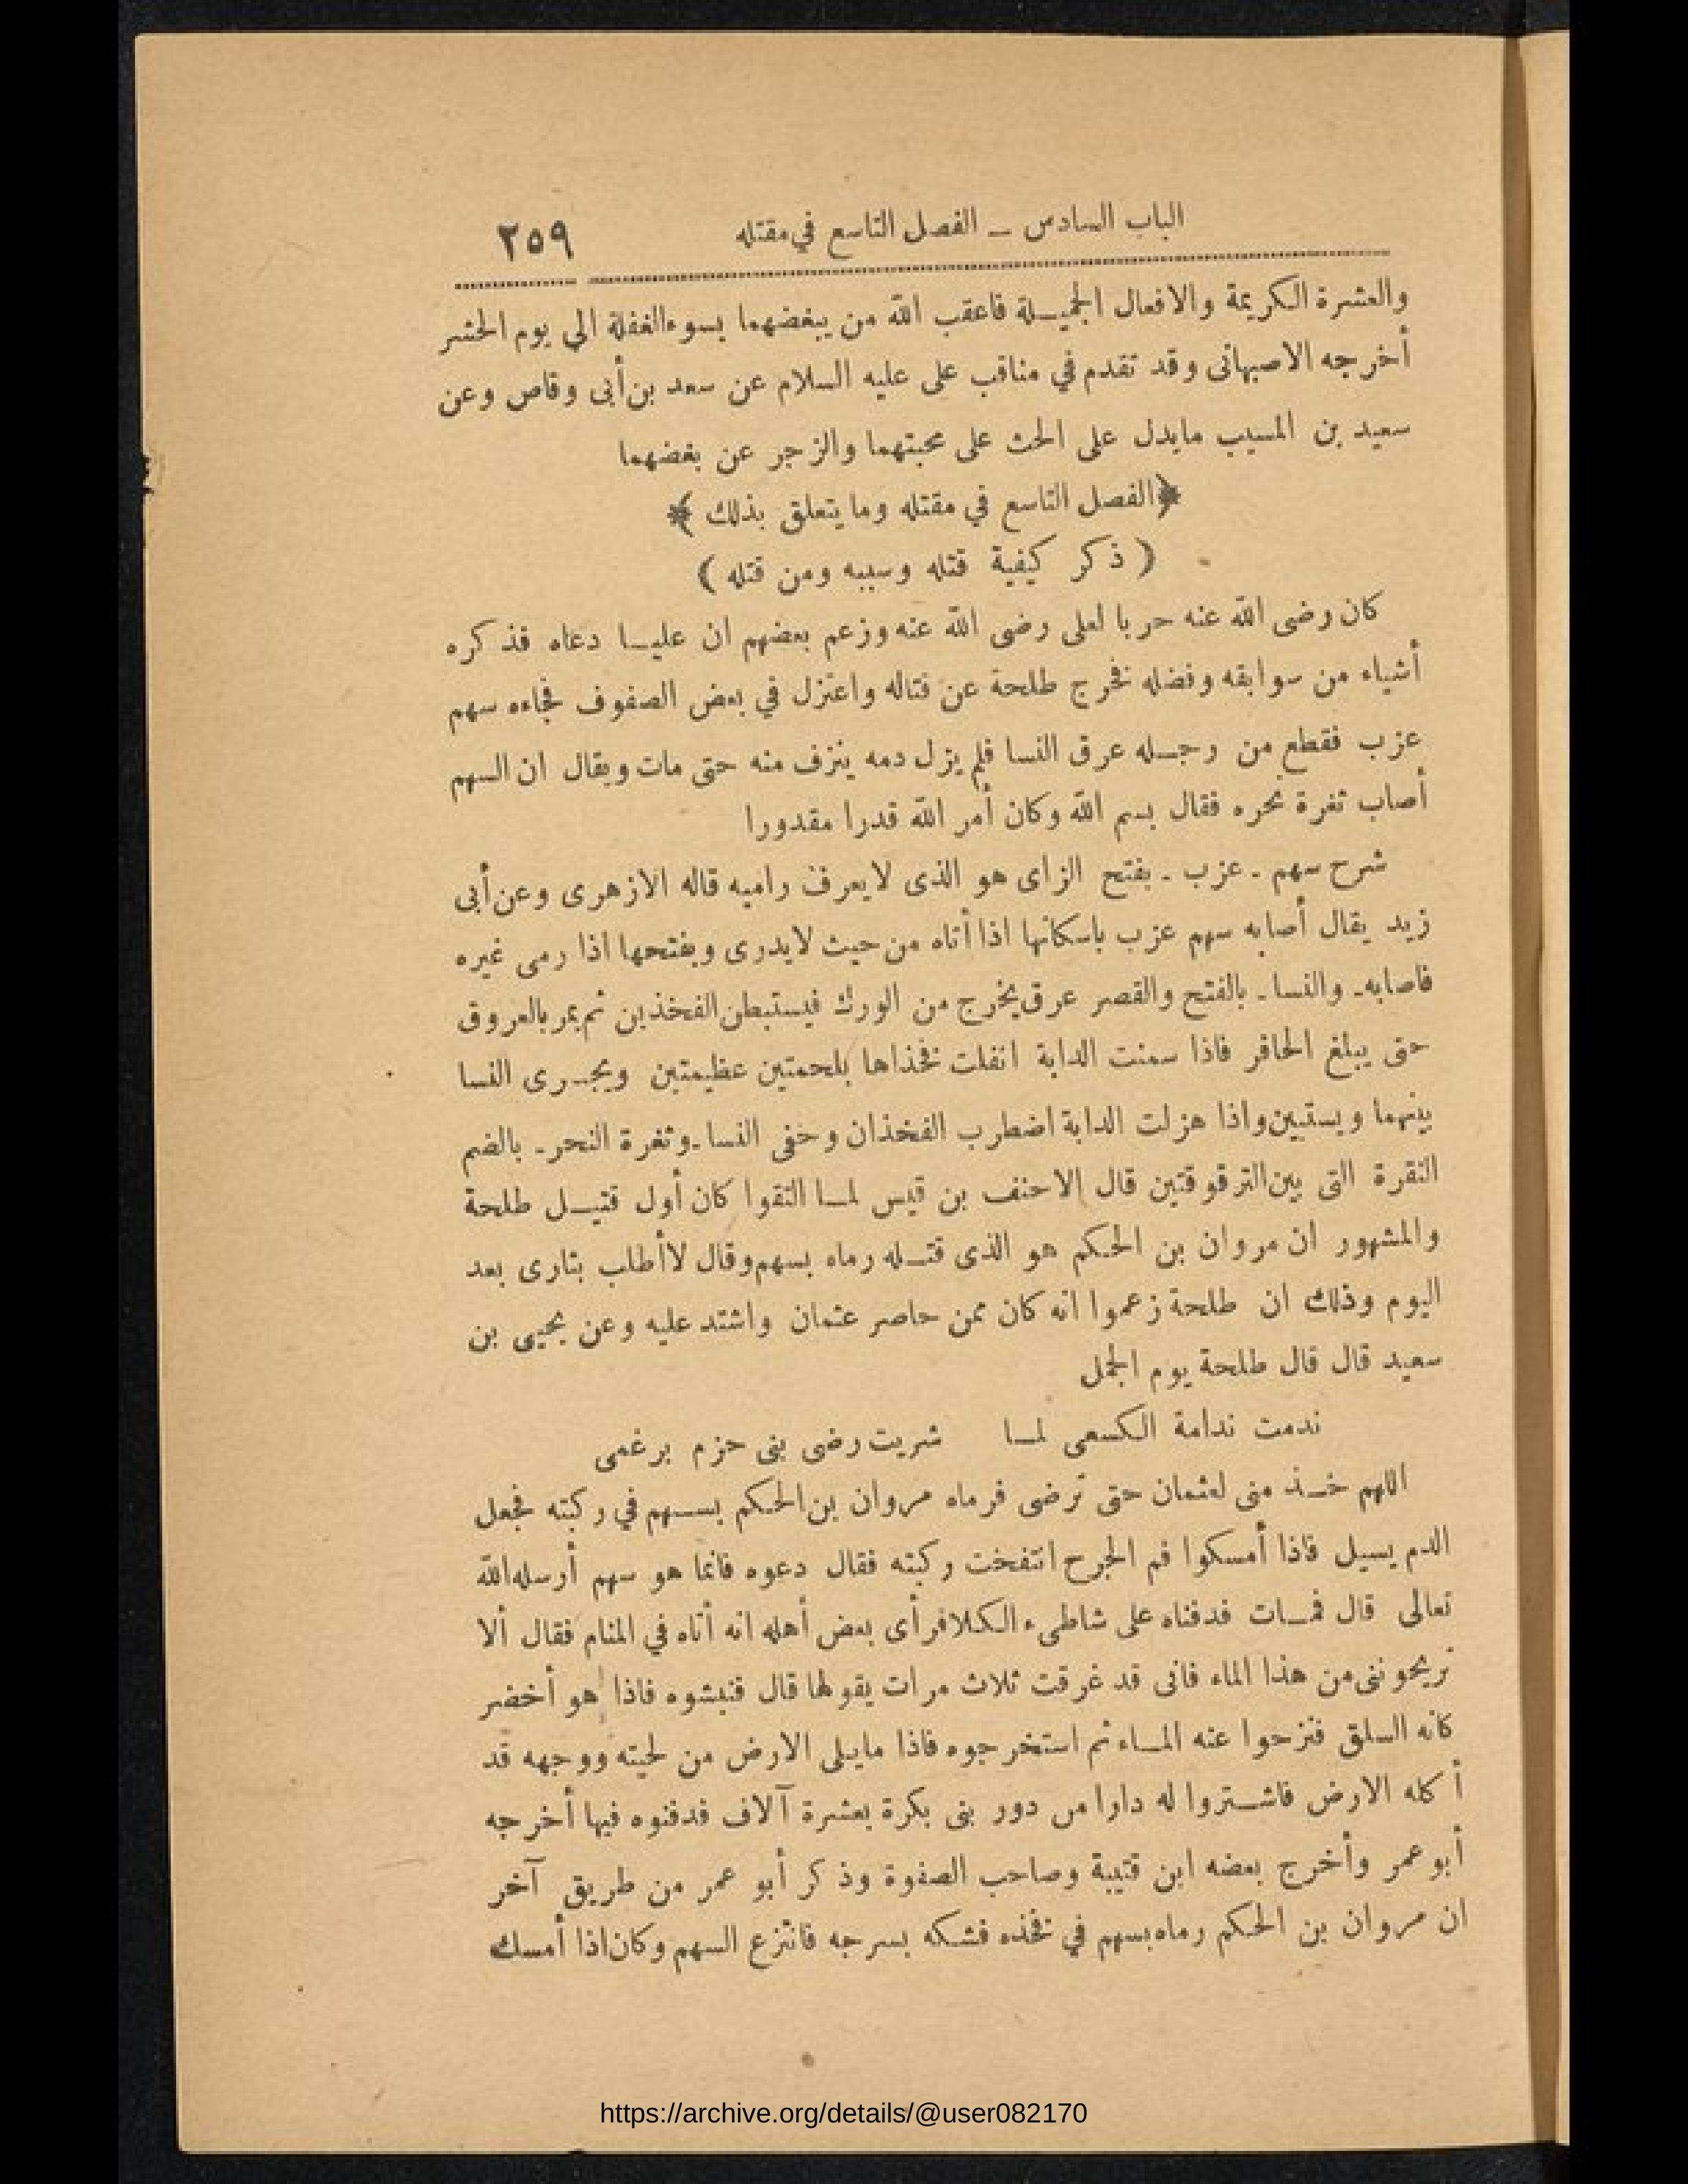 الباب السادس — الفصل التاسع في مقتله ٢٥٩
والعشرة الكريمة والافعال الجميلة فاعقب الله من يبغضهما بسوء الغفلة الى يوم الحشر
أخرجه الاصبهانى وقد تقدم في مناقب على عليه السلام عن سعد بن أبى وقاص وعن
سعيد بن المسيب مايدل على الحث على محبتهما والزجر عن بغضهما
﴿الفصل التاسع في مقتله وما يتعلق بذلك﴾
(ذكر كيفية قتله وسببه ومن قتله)
كان رضى الله عنه حربا لعلى رضى الله عنه وزعم بعضهم ان عليا دعاه فذكره
أشياء من سوابقه وفضله فخرج طلحة عن قتاله واعتزل في بعض الصفوف فجاءه سهم
عزب فقطع من رجله عرق النسا فلم يزل دمه ينزف منه حتى مات ويقال ان السهم
أصاب ثغرة نحره فقال بسم الله وكان أمر الله قدرا مقدورا
شرح سهم - عزب - بفتح الزاى هو الذى لا يعرف راميه قاله الازهرى وعن أبى
زيد يقال أصابه سهم عزب باسكانها اذا أتاه من حيث لا يدرى وبفتحها اذا رمى غيره
فاصابه - والنسا - بالفتح والقصر عرق يخرج من الورك فيستبطن الفخذين ثم يمر بالعروق
حتى يبلغ الحافر فاذا سمنت الدابة انفلت فخذاها بلحمتين عظيمتين ويجرى النسا
بينهما ويستبين واذا هزلت الدابة اضطرب الفخذان وخفى النسا - وثغرة النحر - بالضم
النقرة التى بين الترقوقتين قال الاحنف بن قيس لما التقوا كان أول قتيل طلحة
والمشهور ان مروان بن الحكم هو الذى قتله رماه بسهم وقال لا أطلب بثارى بعد
اليوم وذلك ان طلحة زعموا انه كان ممن حاصر عثمان واشتد عليه وعن يحيى بن
سعيد قال قال طلحة يوم الجمل
ندمت ندامة الكسعى لما شريت رضى بنى حزم برغمى
اللهم خذ منى لعثمان حتى ترضى فرماه مروان بن الحكم بسهم في ركبته فجعل
الدم يسيل فاذا أمسكوا فم الجرح انتفخت ركبته فقال دعوه فانما هو سهم أرسله الله
تعالى قال فمات فدفناه على شاطىء الكلا فرأى بعض أهله انه أتاه في المنام فقال ألا
تريحوننى من هذا الماء فانى قد غرقت ثلاث مرات يقولها قال فنبشوه فاذا هو أخضر
كانه السلق فنزحوا عنه الماء ثم استخرجوه فاذا مايلى الارض من لحيته ووجهه قد
أكله الارض فاشتروا له دارا من دور بنى بكرة بعشرة آلاف فدفنوه فيها أخرجه
أبو عمر وأخرج بعضه ابن قتيبة وصاحب الصفوة وذكر أبو عمر من طريق آخر
ان مروان بن الحكم رماه بسهم في فخذه فشكه بسرجه فانتزع السهم وكان اذا أمسك
https://archive.org/details/@user082170